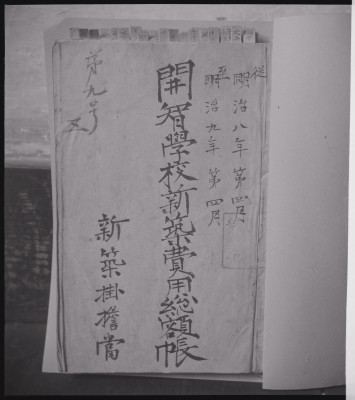 従明治八年第四月
至明治九年第四月
開智學校新築費用総額帳
新築掛擔當
第九号